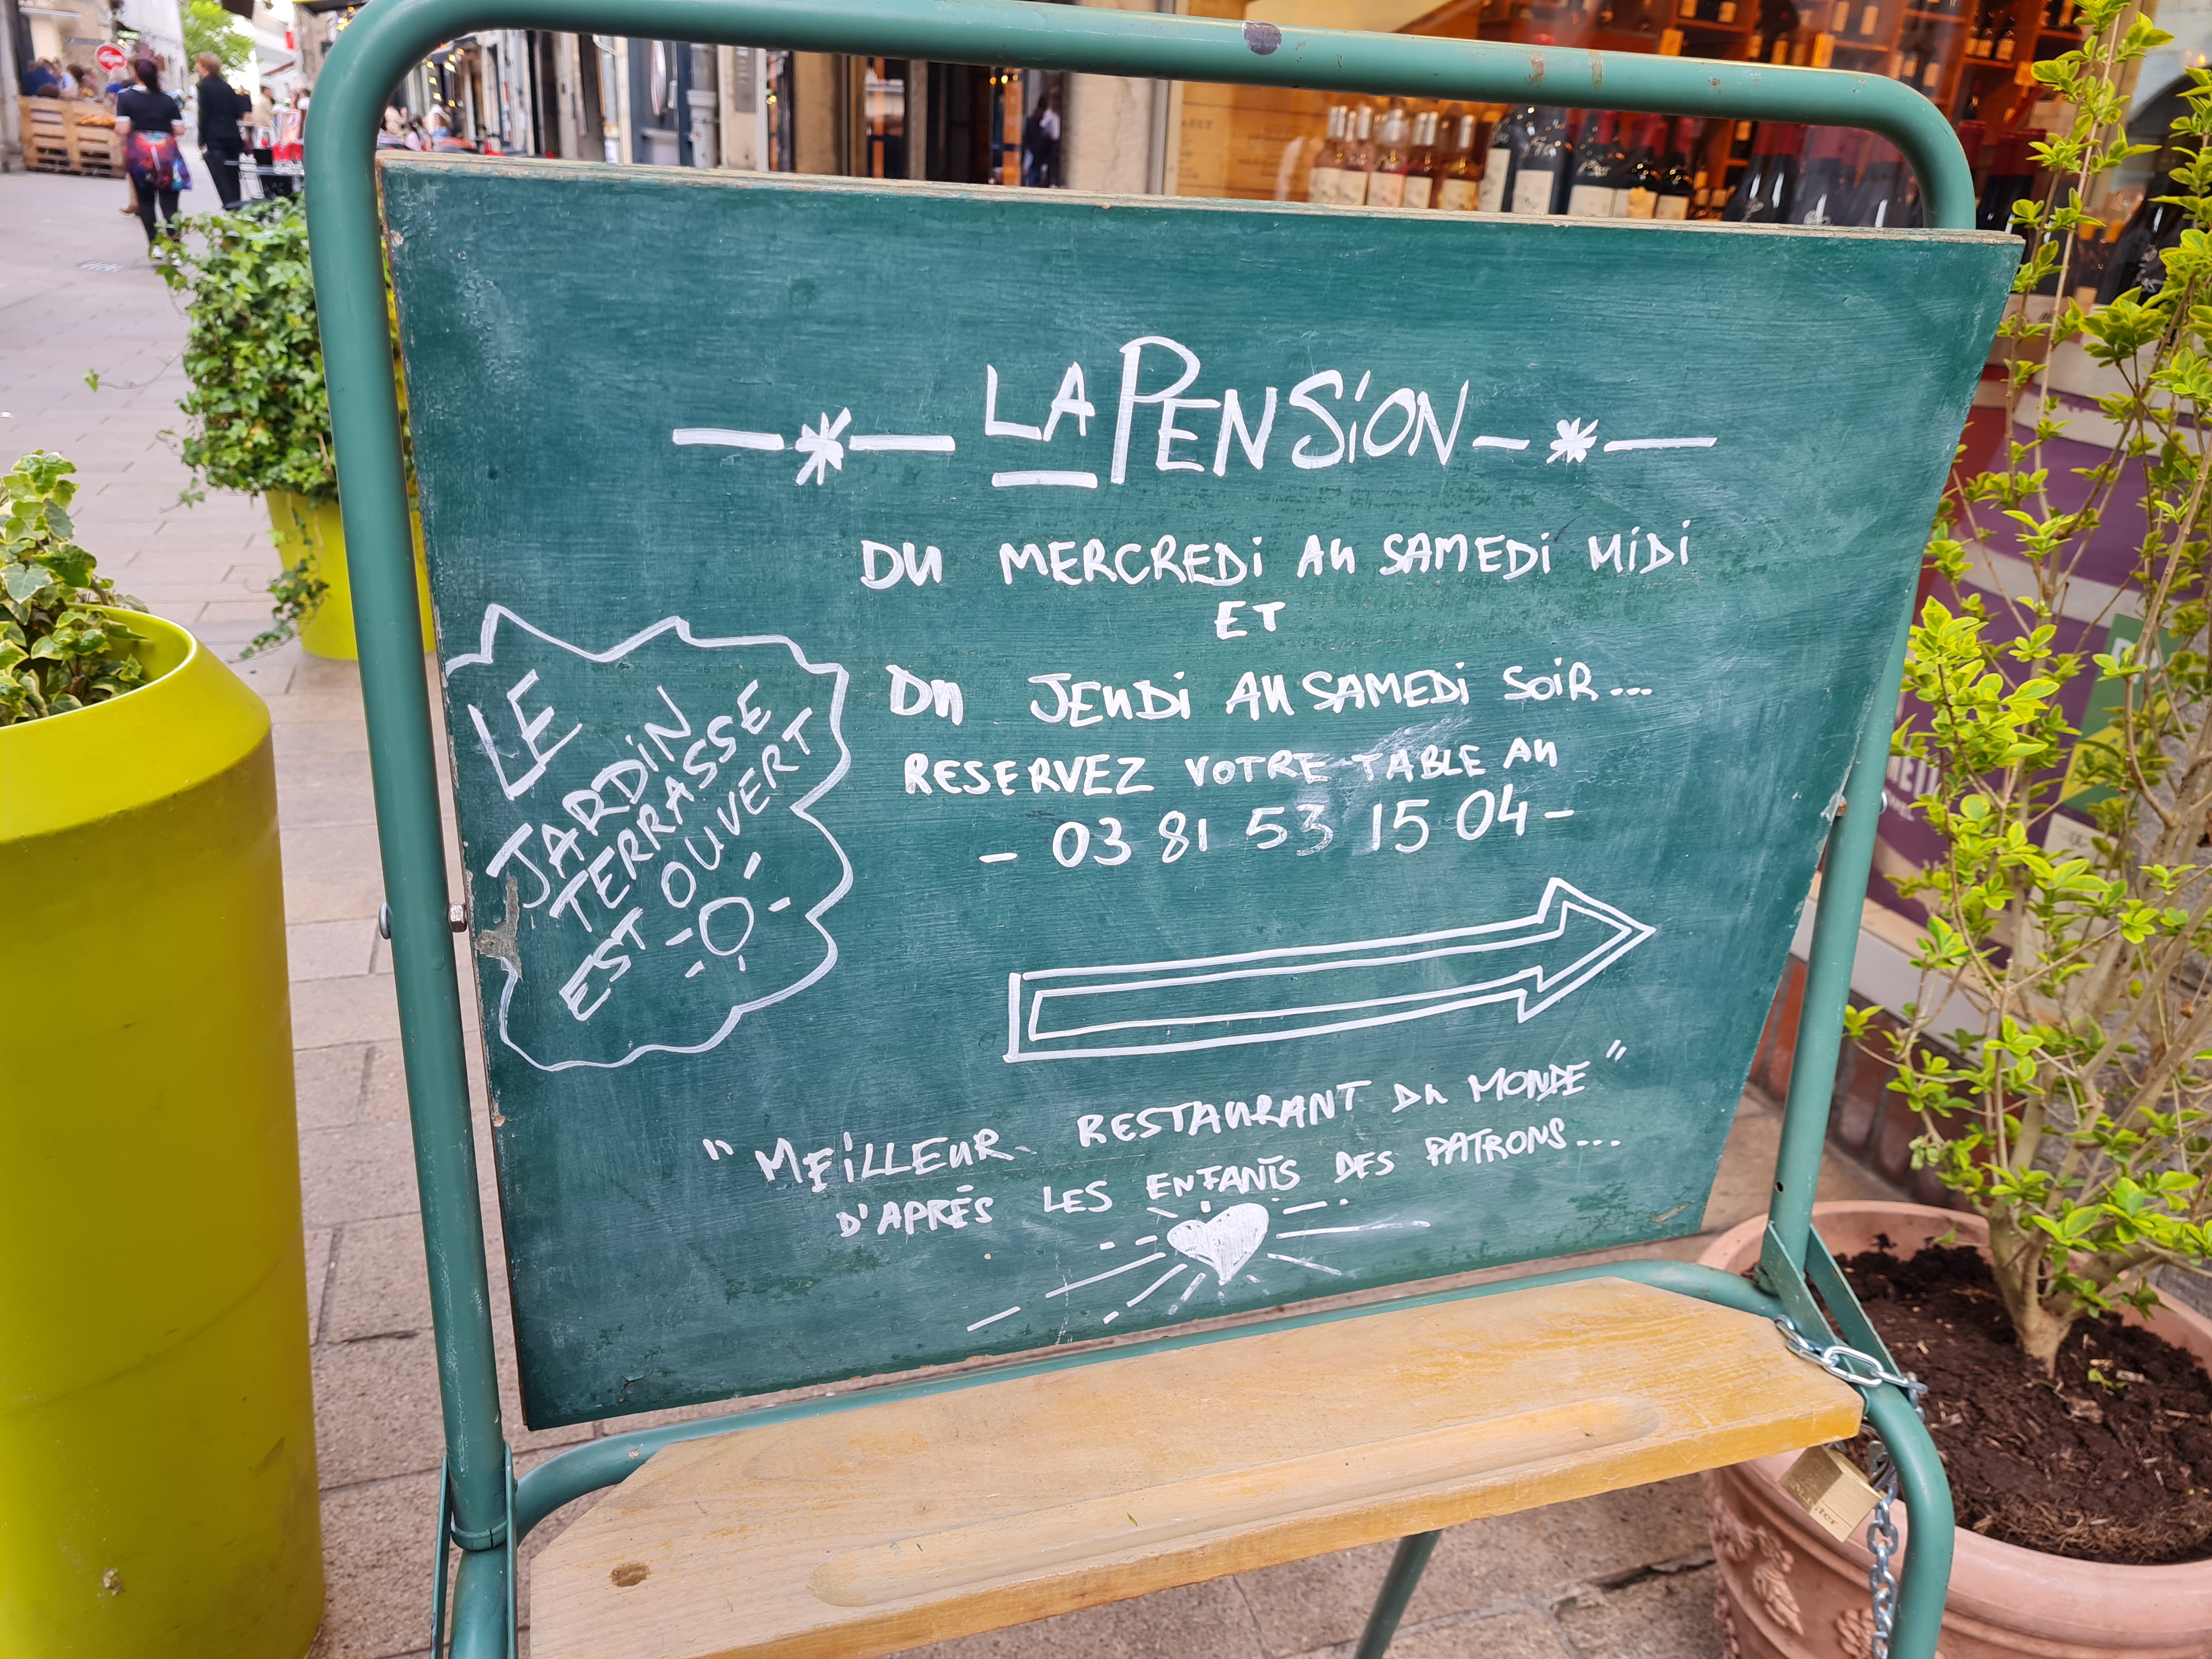 LA PENSION
DU MERCREDI AU SAMEDI MIDI
ET
DU JEUDI AU SAMEDI SOIR...
RESERVEZ VOTRE TABLE AU
- 03 81 53 15 04 -
LE
JARDIN
TERRASSE
EST OUVERT
"MEILLEUR RESTAURANT DU MONDE"
D'APRÈS LES ENFANTS DES PATRONS...